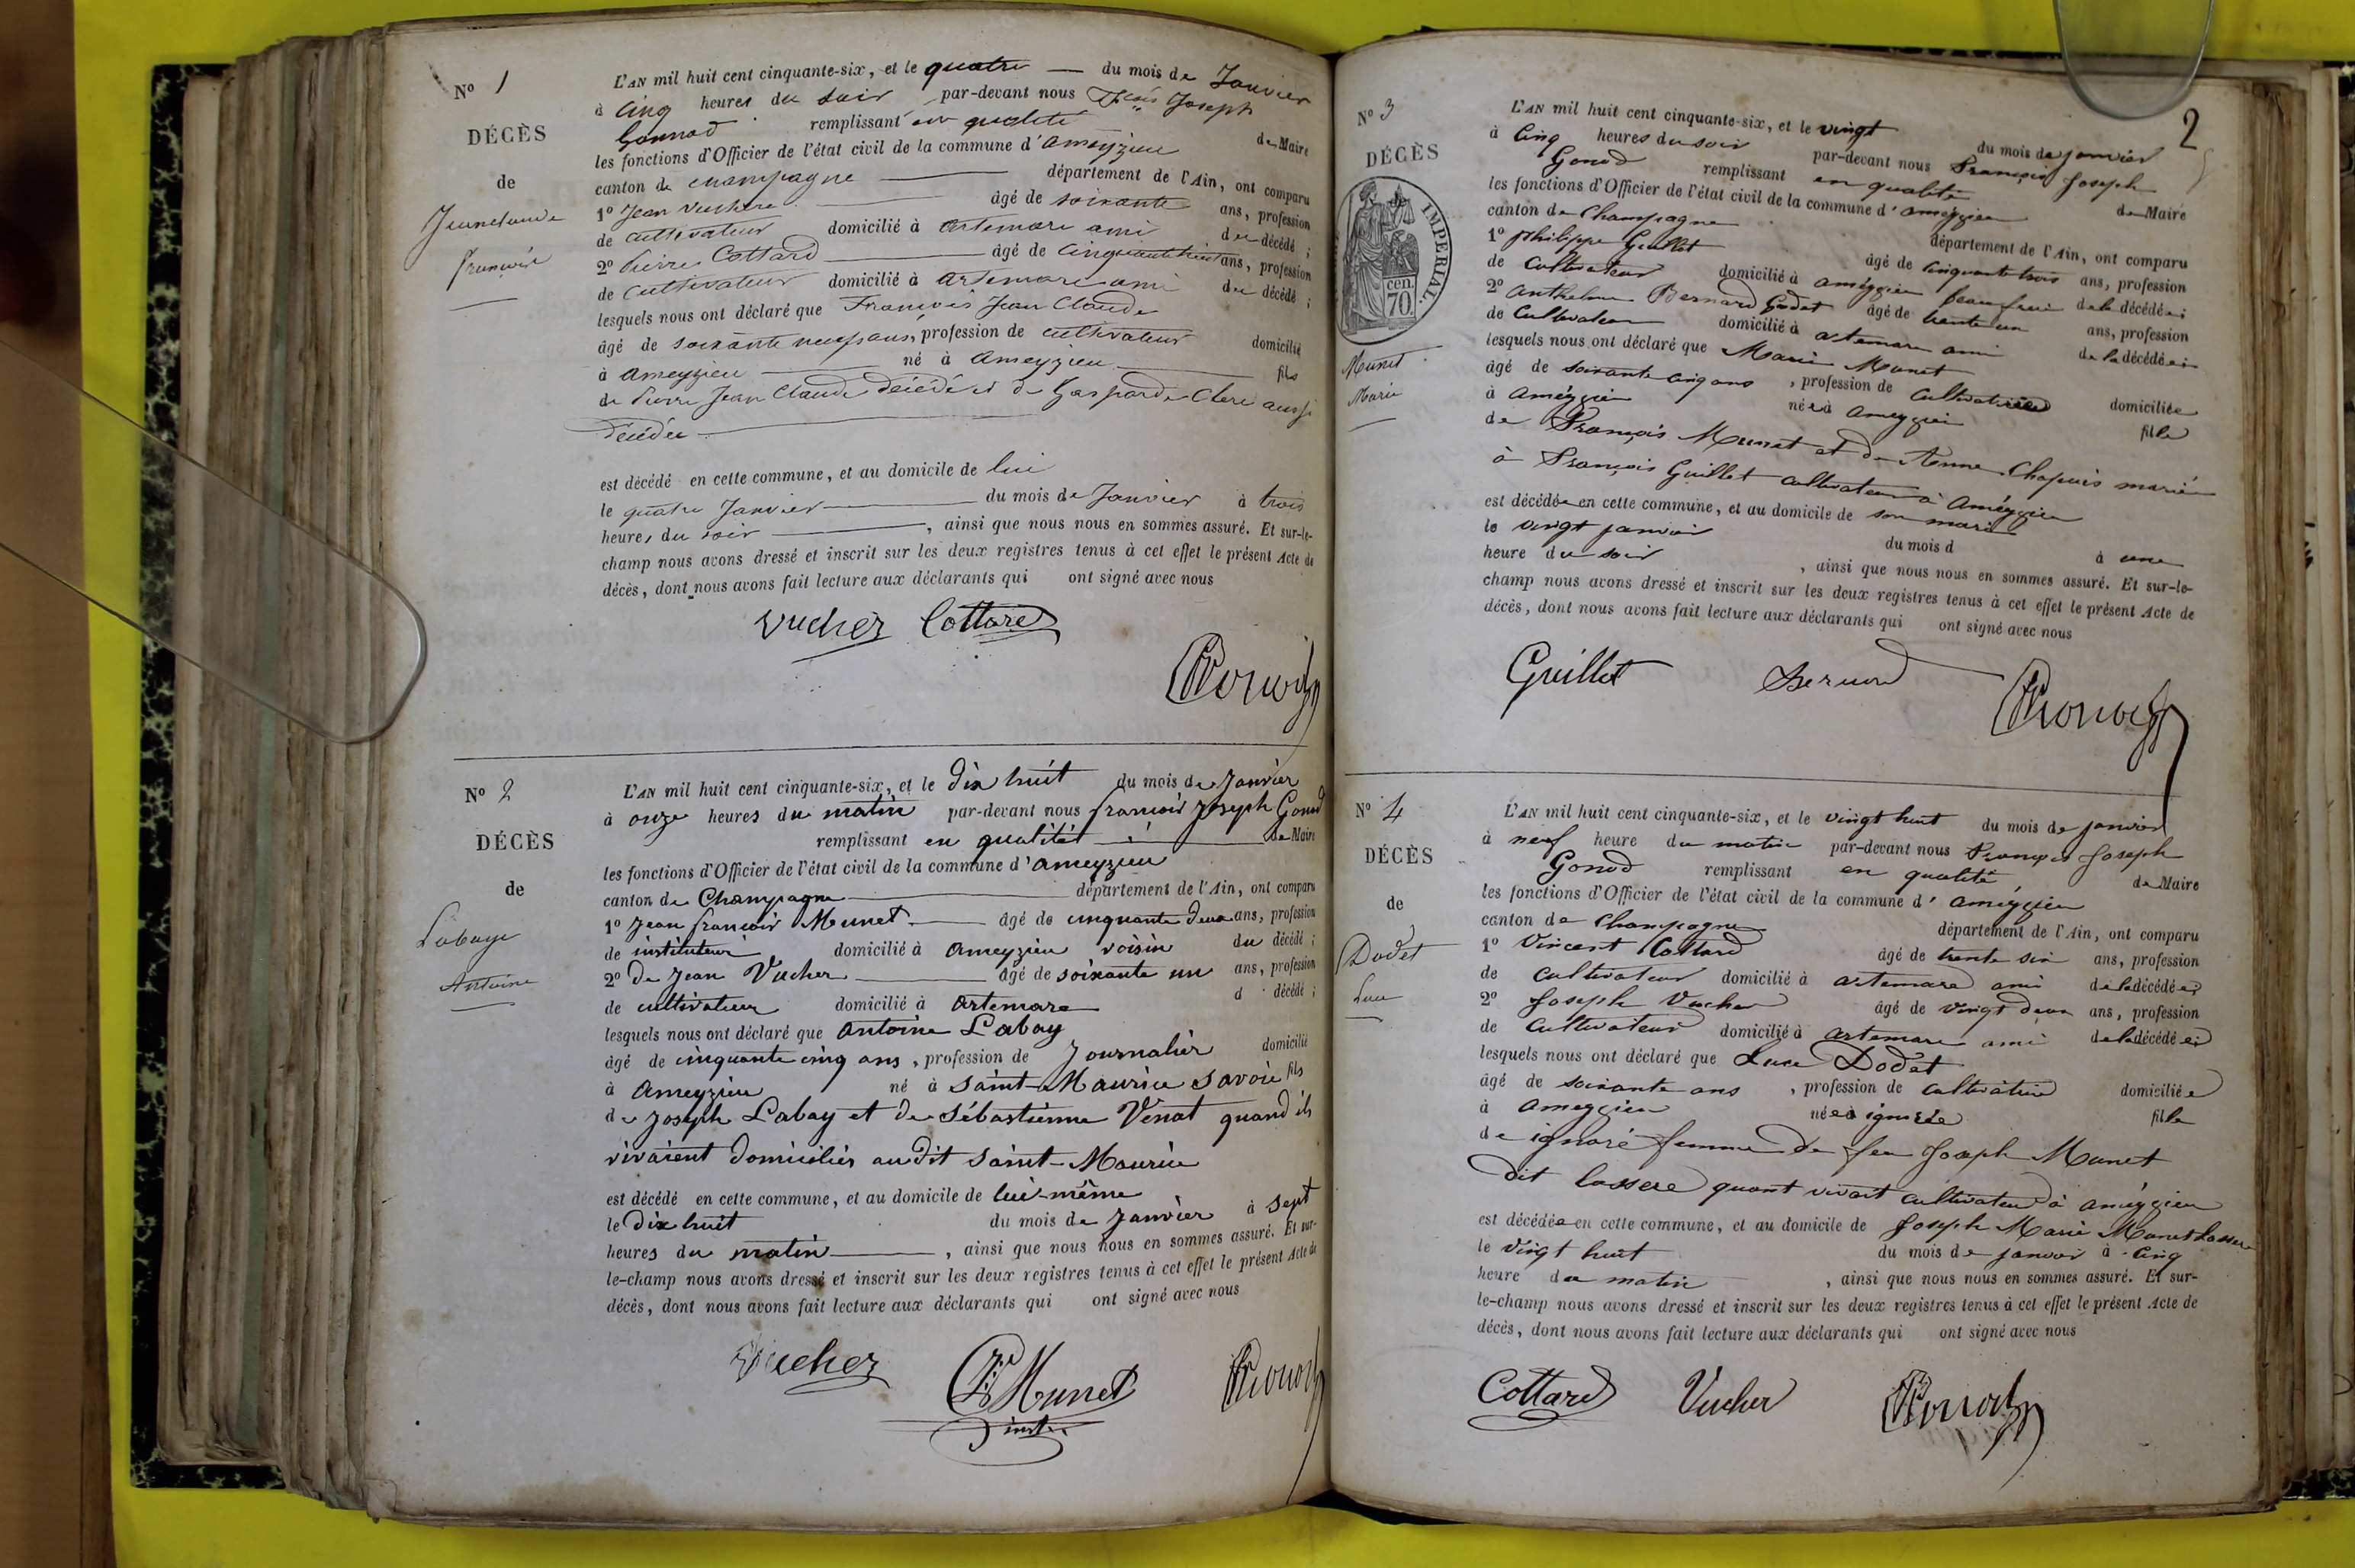 N° 1
DÉCÈS
de
Jeanclaude
françois
L'AN mil huit cent cinquante-six, et le quatre du mois de Janvier
à cinq heures du soir par-devant nous Joseph
Gonnod remplissant en qualité de Maire
les fonctions d'Officier de l'état civil de la commune d'ameyzieu
canton de champagne département de l'Ain, ont comparu
1° Jean Vuchere âgé de soixante ans, profession
de cultivateur domicilié à artemare ami du décédé ;
2° Pierre Cottard âgé de cinquante huit ans, profession
de cultivateur domicilié à artemare ami du décédé ;
lesquels nous ont déclaré que François Jean Claude
âgé de soixante neuf ans, profession de cultivateur domicilié
à ameyzieu né à ameyzieu fils
de Pierre Jean Claude décédé et de Gasparde Clerc aussi
décédée
est décédé en cette commune, et au domicile de lui
le quatre Janvier du mois de Janvier à trois
heures du soir , ainsi que nous nous en sommes assuré. Et sur-le-
champ nous avons dressé et inscrit sur les deux registres tenus à cet effet le présent Acte de
décès, dont nous avons fait lecture aux déclarants qui ont signé avec nous
Vucher Cottard
Gonod
N° 2
DÉCÈS
de
Labaye
Antoine
L'AN mil huit cent cinquante-six, et le dix huit du mois de Janvier
à onze heures du matin par-devant nous françois Joseph Gonod
remplissant en qualitét de Maire
les fonctions d'Officier de l'état civil de la commune d'ameyzieu
canton de Champagne département de l'Ain, ont comparu
1° Jean françois Munet âgé de cinquante deux ans, profession
de instituteur domicilié à ameyzieu voisin du décédé ;
2° de Jean Vucher âgé de soixante un ans, profession
de cultivateur domicilié à artemare d décédé ;
lesquels nous ont déclaré que antoine Labay
âgé de cinquante cinq ans, profession de Journalier domicilié
à ameyzieu né à saint-Maurice savoie fils
de Joseph Labay et de sébastienne Vénat quand ils
vivaient domiciliés audit saint-Maurice
est décédé en cette commune, et au domicile de lui-même
le dix huit du mois de Janvier à sept
heures du matin , ainsi que nous nous en sommes assuré. Et sur-
le-champ nous avons dressé et inscrit sur les deux registres tenus à cet effet le présent Acte de
décès, dont nous avons fait lecture aux déclarants qui ont signé avec nous
Vucher Munet Gonod
instr
2
N° 3
DÉCÈS
IMPERIAL.
cen.
70
Munet
Marie
L'AN mil huit cent cinquante-six, et le vingt du mois de janvier
à cinq heures du soir par-devant nous François Joseph
Gonod remplissant en qualité de Maire
les fonctions d'Officier de l'état civil de la commune d'améyzieu
canton de Champagne département de l'Ain, ont comparu
1° philippe Guillet âgé de cinquante trois ans, profession
de cultivateur domicilié à améyzieu beau frère de la décédée ;
2° anthelme Bernard Godet âgé de trente un ans, profession
de cultivateur domicilié à artemare ami de la décédée ;
lesquels nous ont déclaré que Marie Munet
âgé de soixante cinq ans , profession de cultivatrice domiciliée
à améyzieu née à ameyzieu fille
de François Munet et de Anne Chapuis mariée
à François Guillet cultivateur à Améyzieu
est décédée en cette commune, et au domicile de son mari
le vingt janvier du mois d à une
heure du soir , ainsi que nous nous en sommes assuré. Et sur-le-
champ nous avons dressé et inscrit sur les deux registres tenus à cet effet le présent Acte de
décès, dont nous avons fait lecture aux déclarants qui ont signé avec nous
Guillet Bernard Gonod
N° 4
DÉCÈS
de
Dodet
Luce
L'AN mil huit cent cinquante-six, et le vingt huit du mois de janvier
à neuf heure du matin par-devant nous François Joseph
Gonod remplissant en qualité de Maire
les fonctions d'Officier de l'état civil de la commune d'améyzieu
canton de Champagne département de l'Ain, ont comparu
1° Vincent Cottard âgé de trente six ans, profession
de cultivateur domicilié à artemare ami de la décédée ;
2° Joseph Vucher âgé de vingt deux ans, profession
de cultivateur domicilié à artemare ami de la décédée ;
lesquels nous ont déclaré que Luce Dodet
âgé de soixante ans , profession de cultivatrice domiciliée
à ameyzieu née à ignorée fille
de ignoré femme de feu Joseph Munet
dit lassere quant vivait cultivateur à améyzieu
est décédée en cette commune, et au domicile de Joseph Marie Munet Lassere
le vingt huit du mois de janvier à cinq
heure du matin , ainsi que nous nous en sommes assuré. Et sur-
le-champ nous avons dressé et inscrit sur les deux registres tenus à cet effet le présent Acte de
décès, dont nous avons fait lecture aux déclarants qui ont signé avec nous
Cottard Vucher Gonod